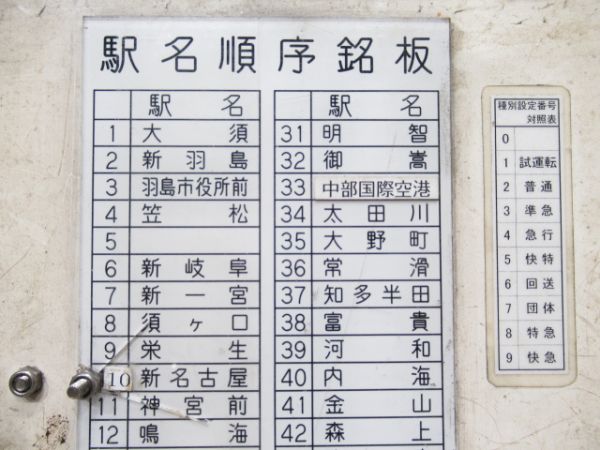 駅名順序銘板
駅名
1 大須
2 新羽島
3 羽島市役所前
4 笠松
5
6 新岐阜
7 新一宮
8 須ヶ口
9 栄生
10 新名古屋
11 神宮前
12 鳴海
駅名
31 明智
32 御嵩
33 中部国際空港
34 太田川
35 大野町
36 常滑
37 知多半田
38 富貴
39 河和
40 内海
41 金山
42 森上
種別設定番号
対照表
0
1 試運転
2 普通
3 準急
4 急行
5 快特
6 回送
7 団体
8 特急
9 快急